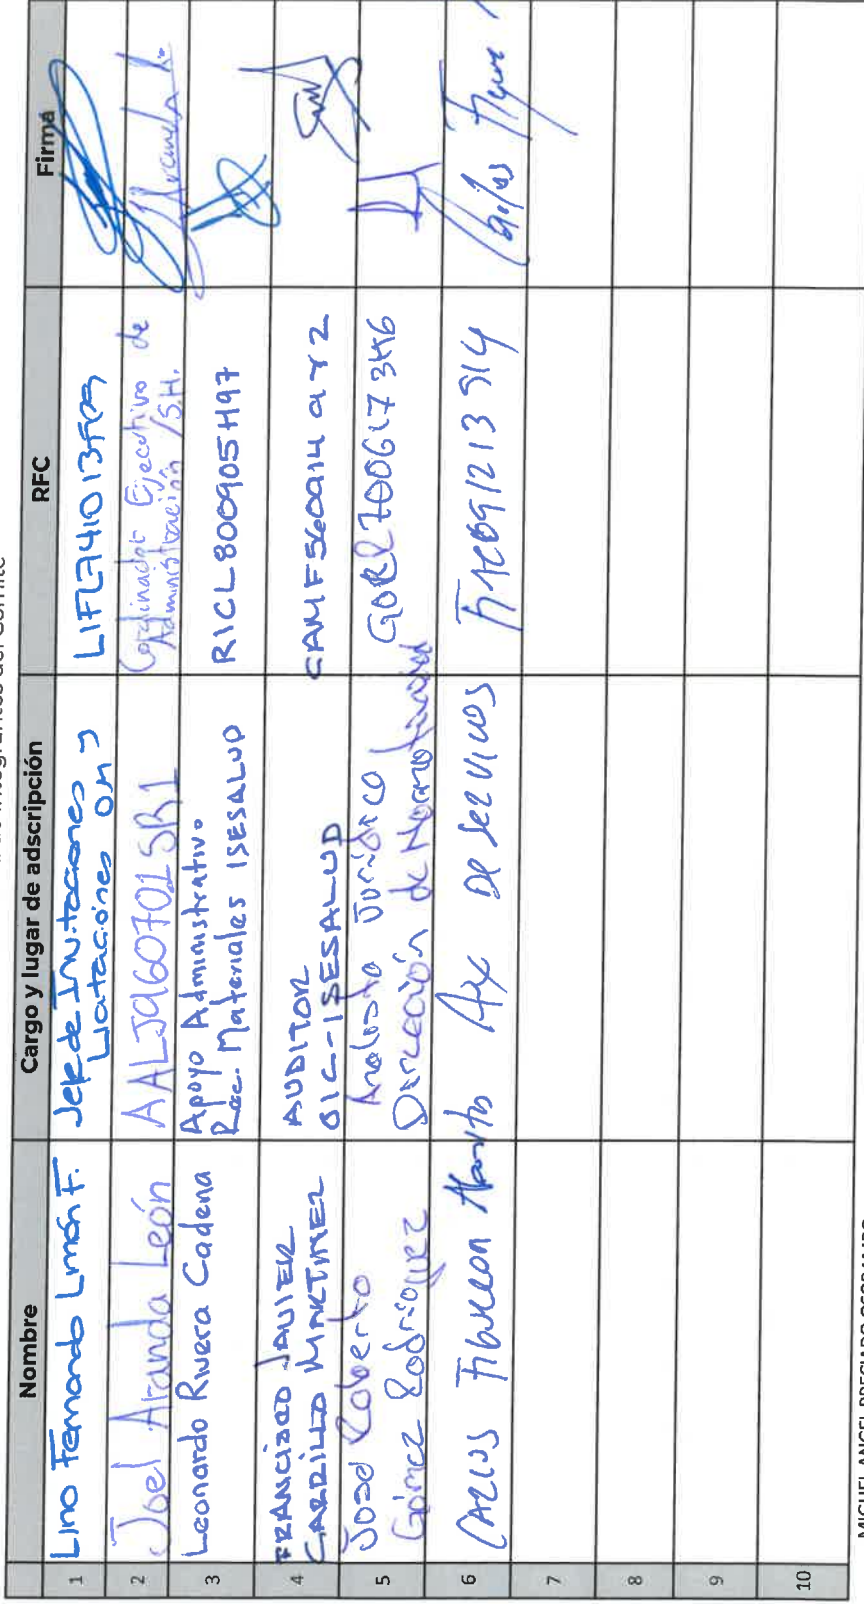 Integrantes del Comité
Nombre Cargo y lugar de adscripción RFC Firma
1 Lino Fernando Limón F. Jefe de Invitaciones y Licitaciones OM LIFL741013
2 Joel Aranda León AALJ960701SR1 Coordinador Ejecutivo de Administración /S.H.
3 Leonardo Rivera Cadena Apoyo Administrativo
Rec. Materiales ISESALUD RICL800905H97
4 FRANCISCO JAVIER
CARRILLO MARTINEZ AUDITOR
OIC-ISESALUD CAMF560914
5 José Roberto
Gómez Rodríguez Analista Jurídico
Dirección de Normatividad GORR700617
6 Carlos Figueroa Ax De Servicios Carlos
7
8
9
10
MIGUEL ANGEL PRECIADO